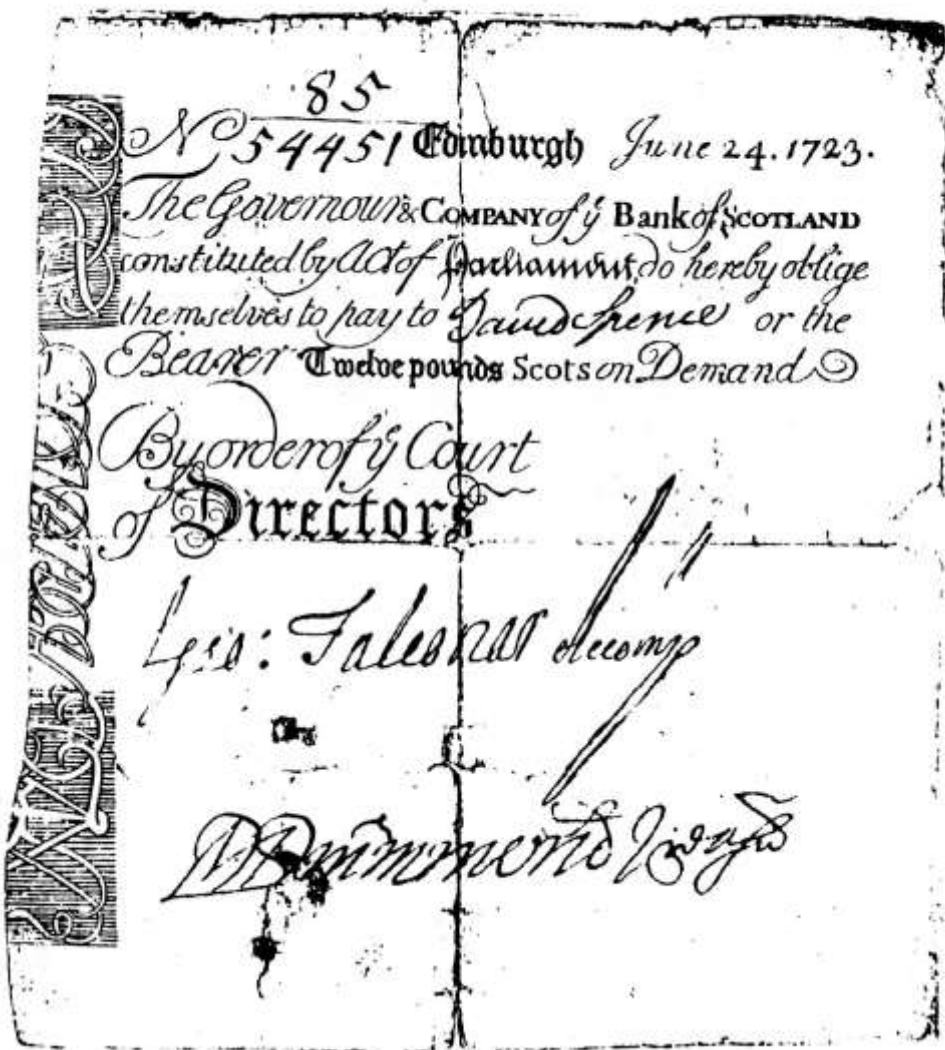 85
No 54451 Edinburgh June 24. 1723.
The Governour & COMPANY of ye Bank of SCOTLAND
constituted by Act of Parliament do hereby oblige
themselves to pay to David Spence or the
Bearer Twelve pounds Scots on Demand
By order of ye Court
of Directors
Geo: Falconar Accomp
Drummond